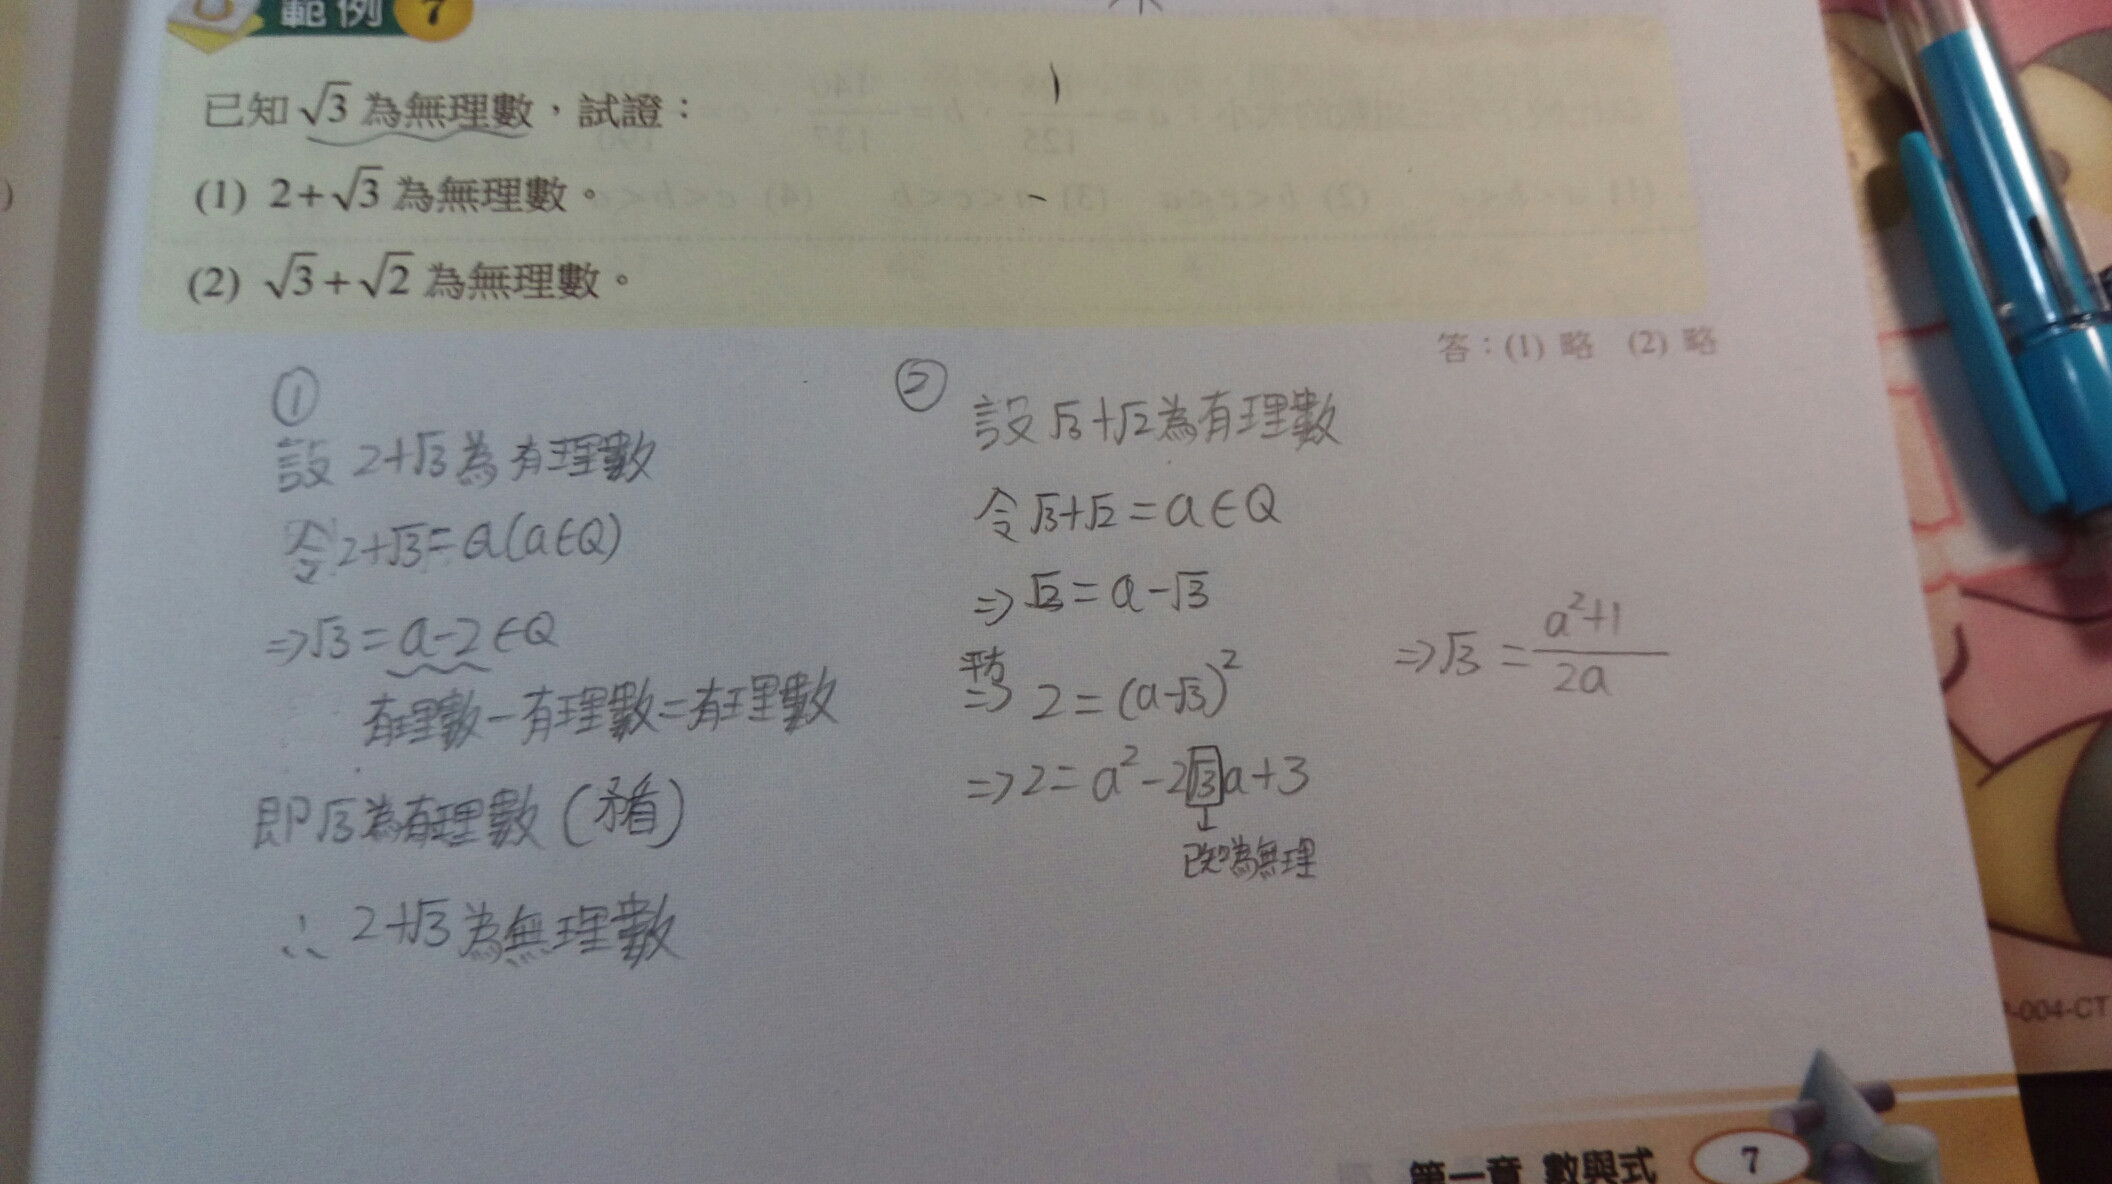 範例 7
已知√3為無理數，試證：
(1) 2+√3為無理數。
(2) √3+√2為無理數。
答：(1) 略 (2) 略
①
設 2+√3為有理數
令2+√3=a(a∈Q)
⇒√3=a-2∈Q
有理數-有理數=有理數
即√3為有理數(矛盾)
∴ 2+√3為無理數
②
設√3+√2為有理數
令√3+√2=a∈Q
⇒√2=a-√3
平方
⇒ 2=(a-√3)²
⇒2=a²-2√3a+3
已知為無理
⇒√3=a²+1/2a
-004-CT
第一章 數與式 7